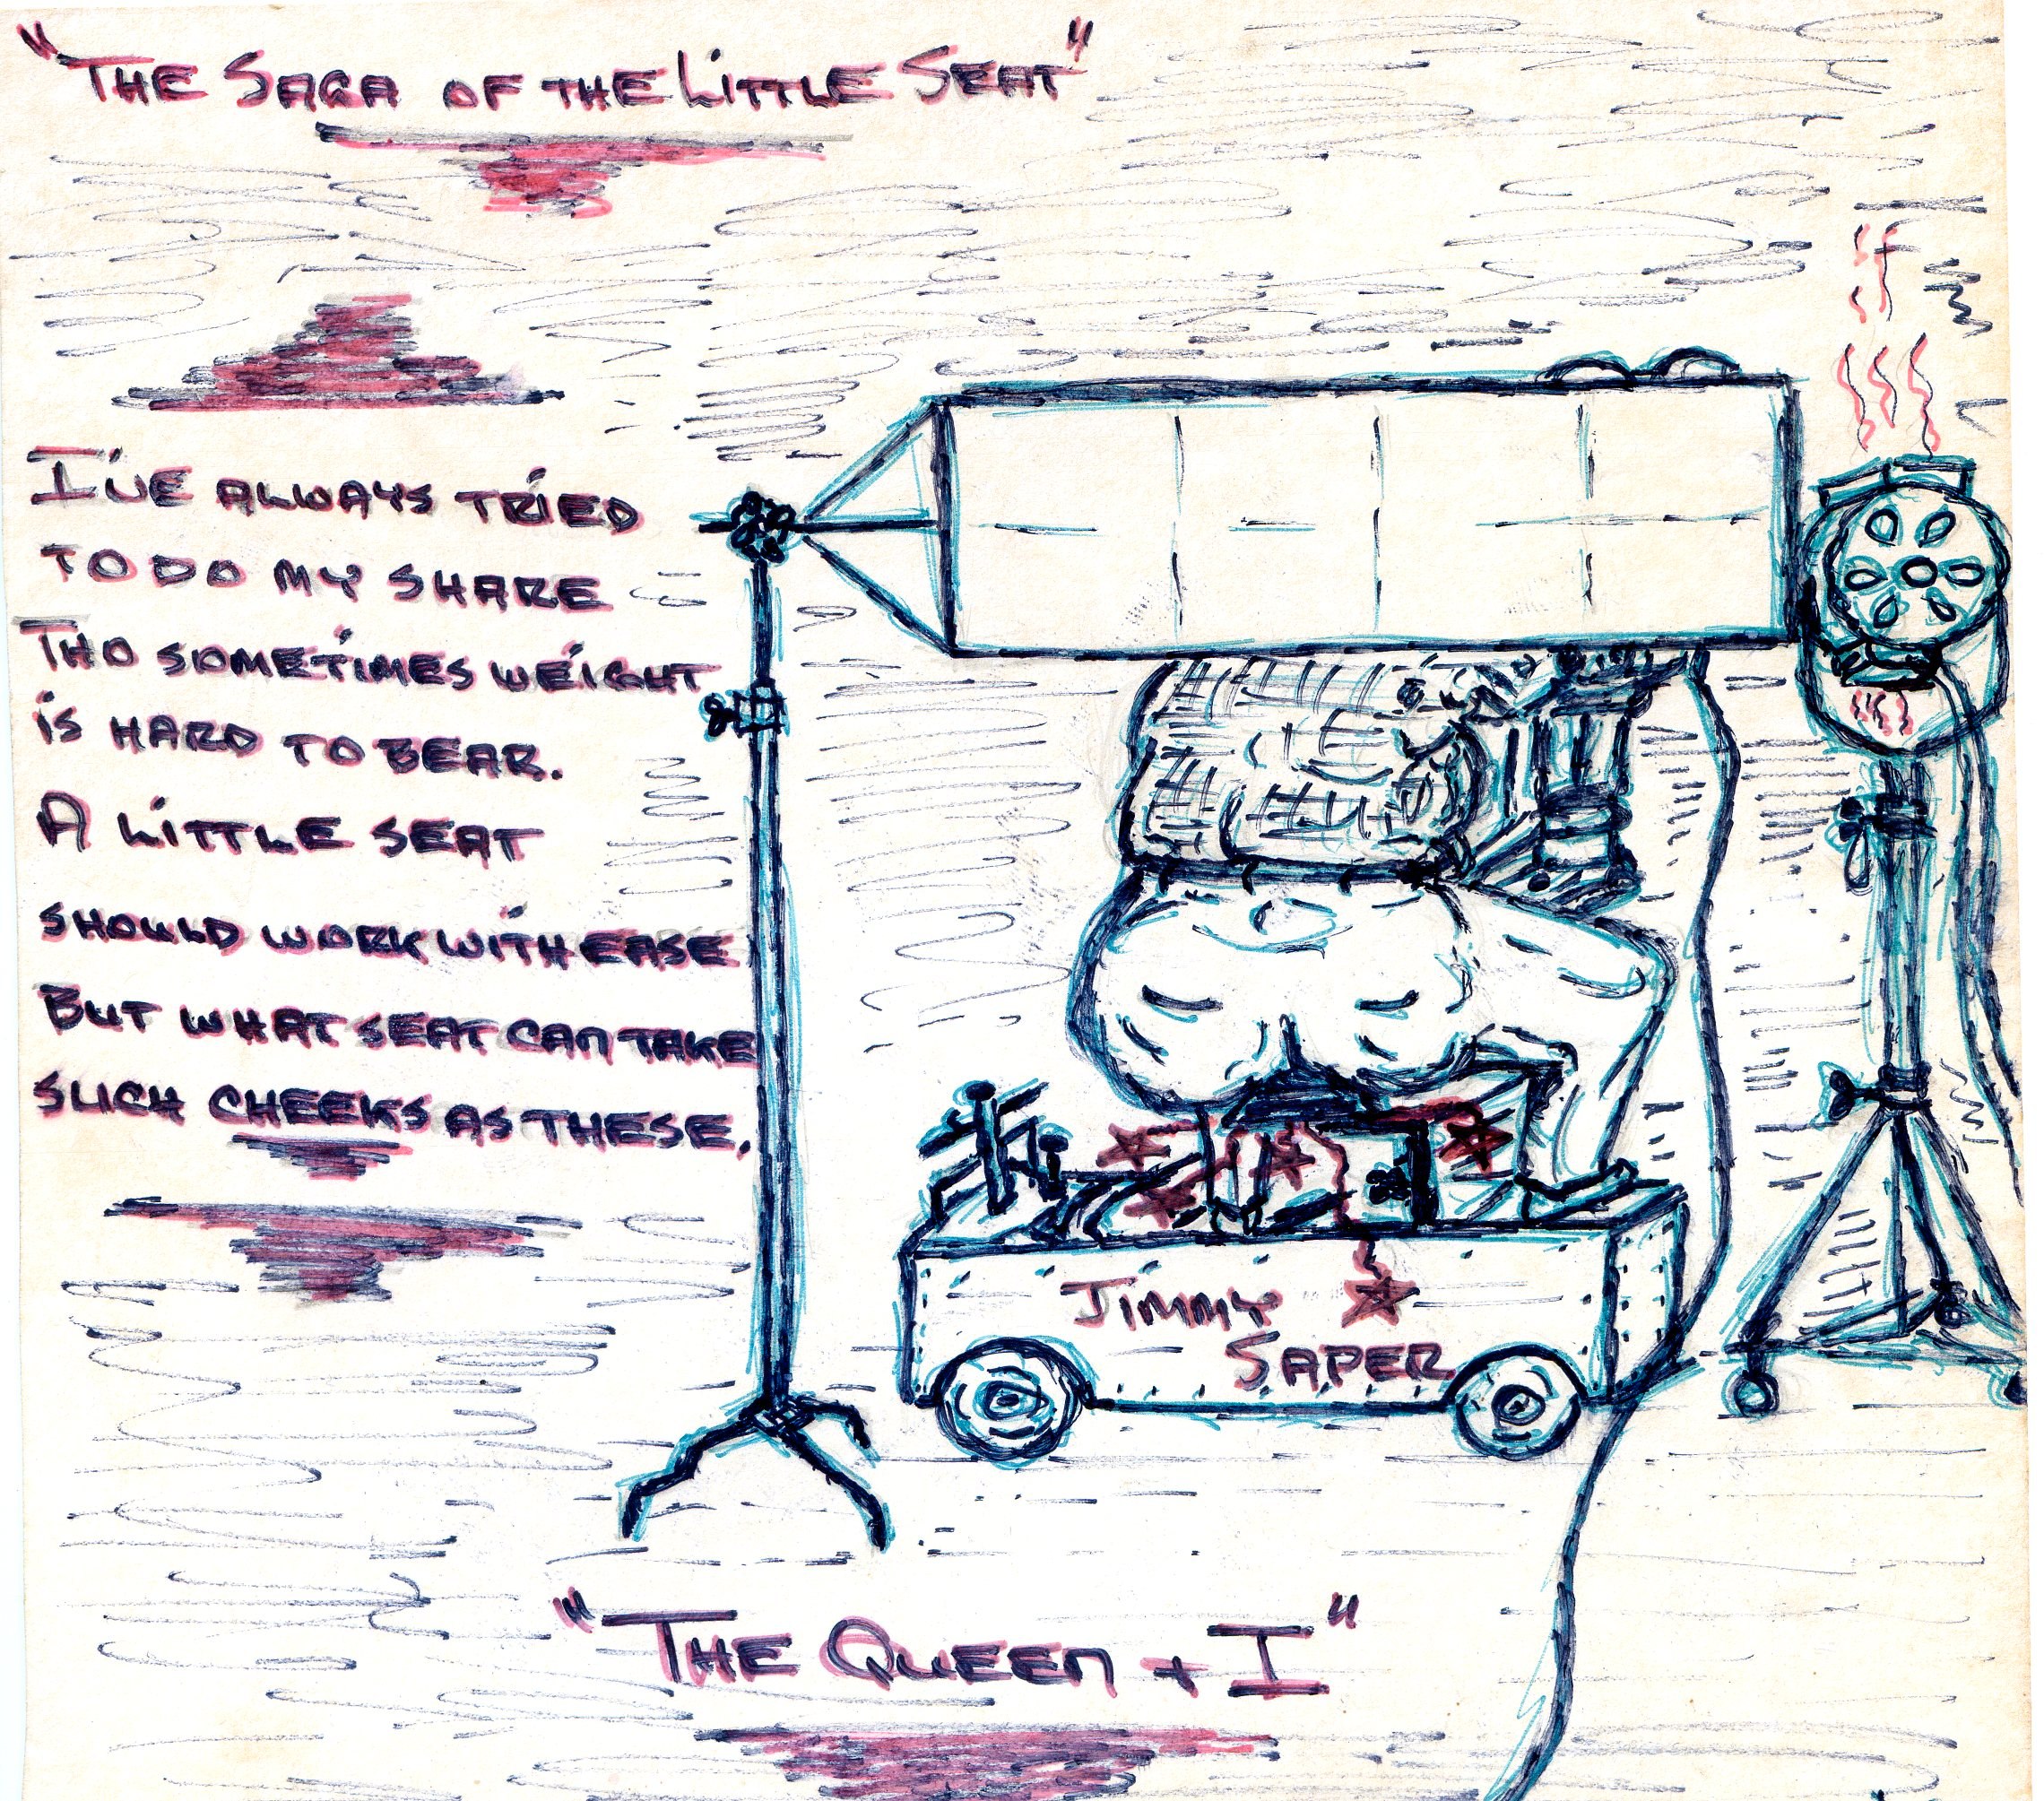 "THE SAGA OF THE LITTLE SEAT"
I'VE ALWAYS TRIED
TO DO MY SHARE
THO SOMETIMES WEIGHT
IS HARD TO BEAR.
A LITTLE SEAT
SHOULD WORK WITH EASE
BUT WHAT SEAT CAN TAKE
SUCH CHEEKS AS THESE.
JIMMY
SAPER
"THE QUEEN + I"